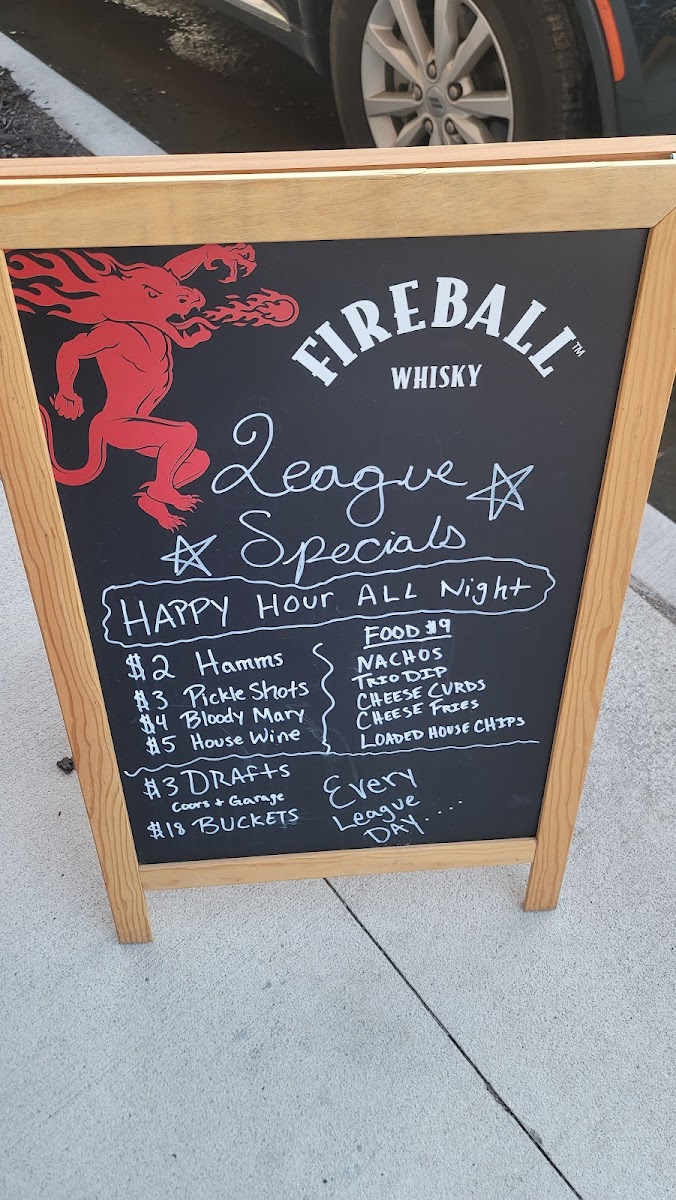 FIREBALL™
WHISKY
League
Specials
HAPPY Hour ALL Night
$2 Hamms
$3 Pickle Shots
$4 Bloody Mary
$5 House Wine
FOOD $9
NACHOS
TRIO DIP
CHEESE CURDS
CHEESE FRIES
LOADED HOUSE CHIPS
$3 DRAftS
Coors + Garage
$18 BUCKETS
Every
League
DAY.....